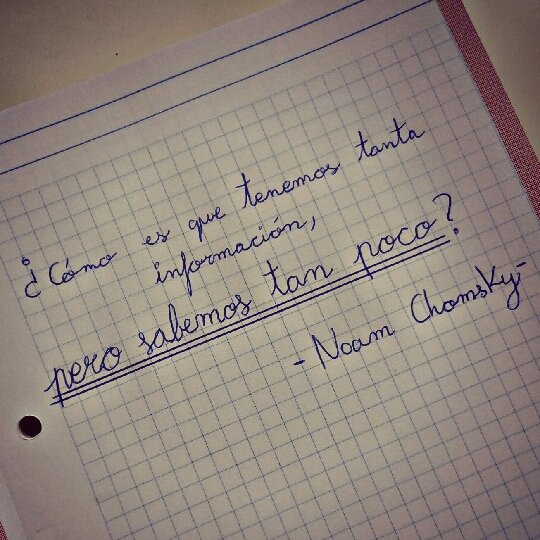 ¿Cómo es que tenemos tanta
información,
pero sabemos tan poco?
- Noam Chomsky-